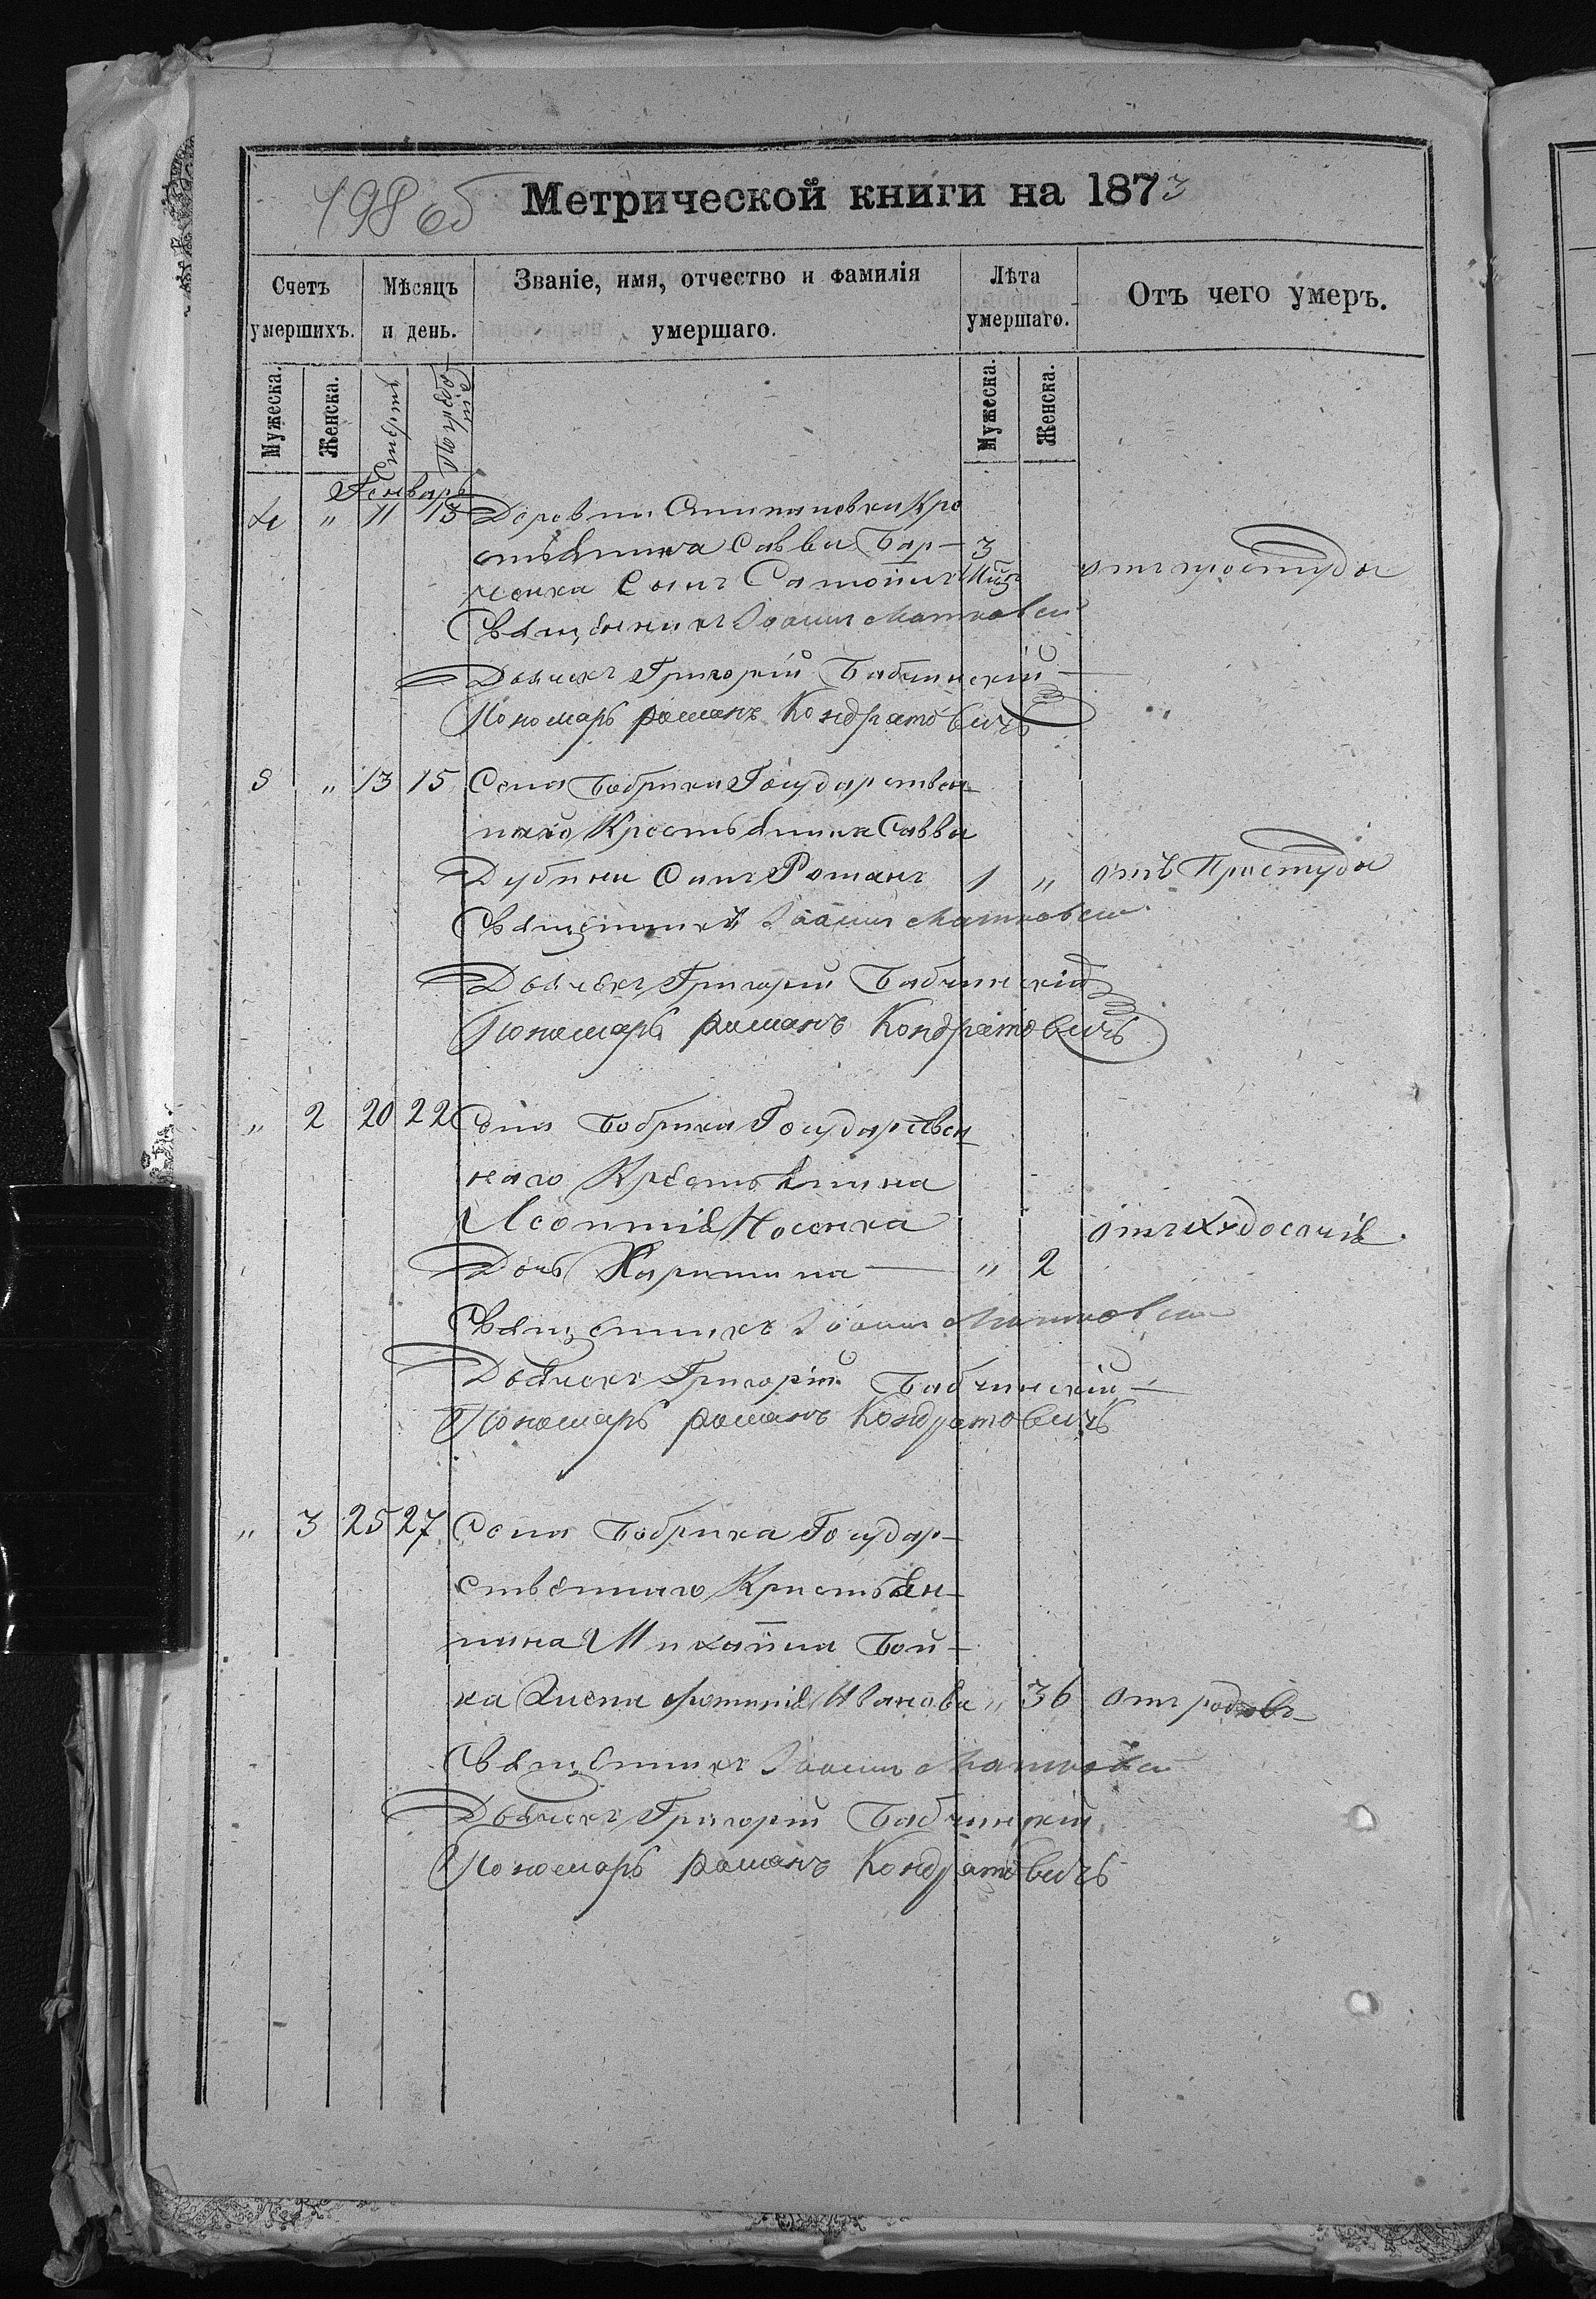 198 об Метрической книги на 1873
Счетъ умершихъ. Мѣсяцъ и день. Званіе, имя, отчество и фамилія умершаго. Лѣта умершаго. Отъ чего умеръ.
Мужеска. Женска. Смерти Погребенія Мужеска. Женска.
Генварь
4 " 11 13 Деревни Степановки Кре
стьянина Саввы Бар- 3
ченка Сынъ Самоилъ Мцъ отъ простуды
Священникъ Іоаннъ
Дьячекъ Григорій Бабчинскій
Пономарь романъ Кондратовичъ
5 " 13 15 Села Бобрика Государствен
наго Крестьянина Саввы
Дубины Сынъ Романъ 1 " отъ Простуды
Священникъ Іоаннъ
Дьячекъ Григорій Бабчинскій
Пономарь романъ Кондратовичъ
" 2 20 22 Села Бобрика Государствен
наго Крестьянина
Леонтія Носенка отъ худосочія.
Дочь Харитина " 2
Священникъ Іоаннъ
Дьячекъ Григорій Бабчинскій
Пономарь романъ Кондратовичъ
" 3 25 27 Села Бобрика Государ-
ственнаго Кристьян-
нина Михаила Бой-
ка Жена Иванова " 36 отъ родовъ
Священникъ Іоаннъ
Дьячекъ Григорій Бабчинскій
Пономарь романъ Кондратовичъ